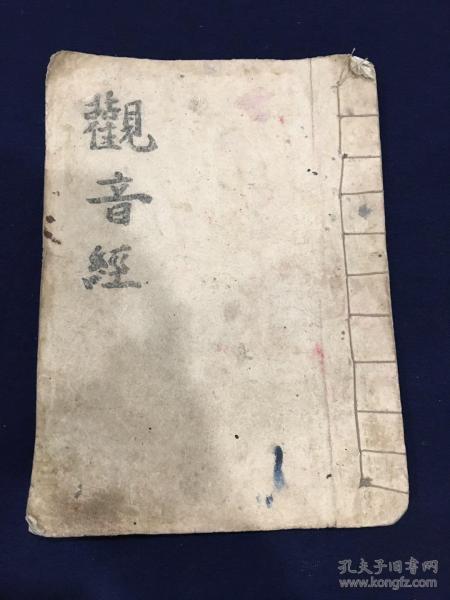 觀音經
孔夫子旧书网
www.kongfz.com